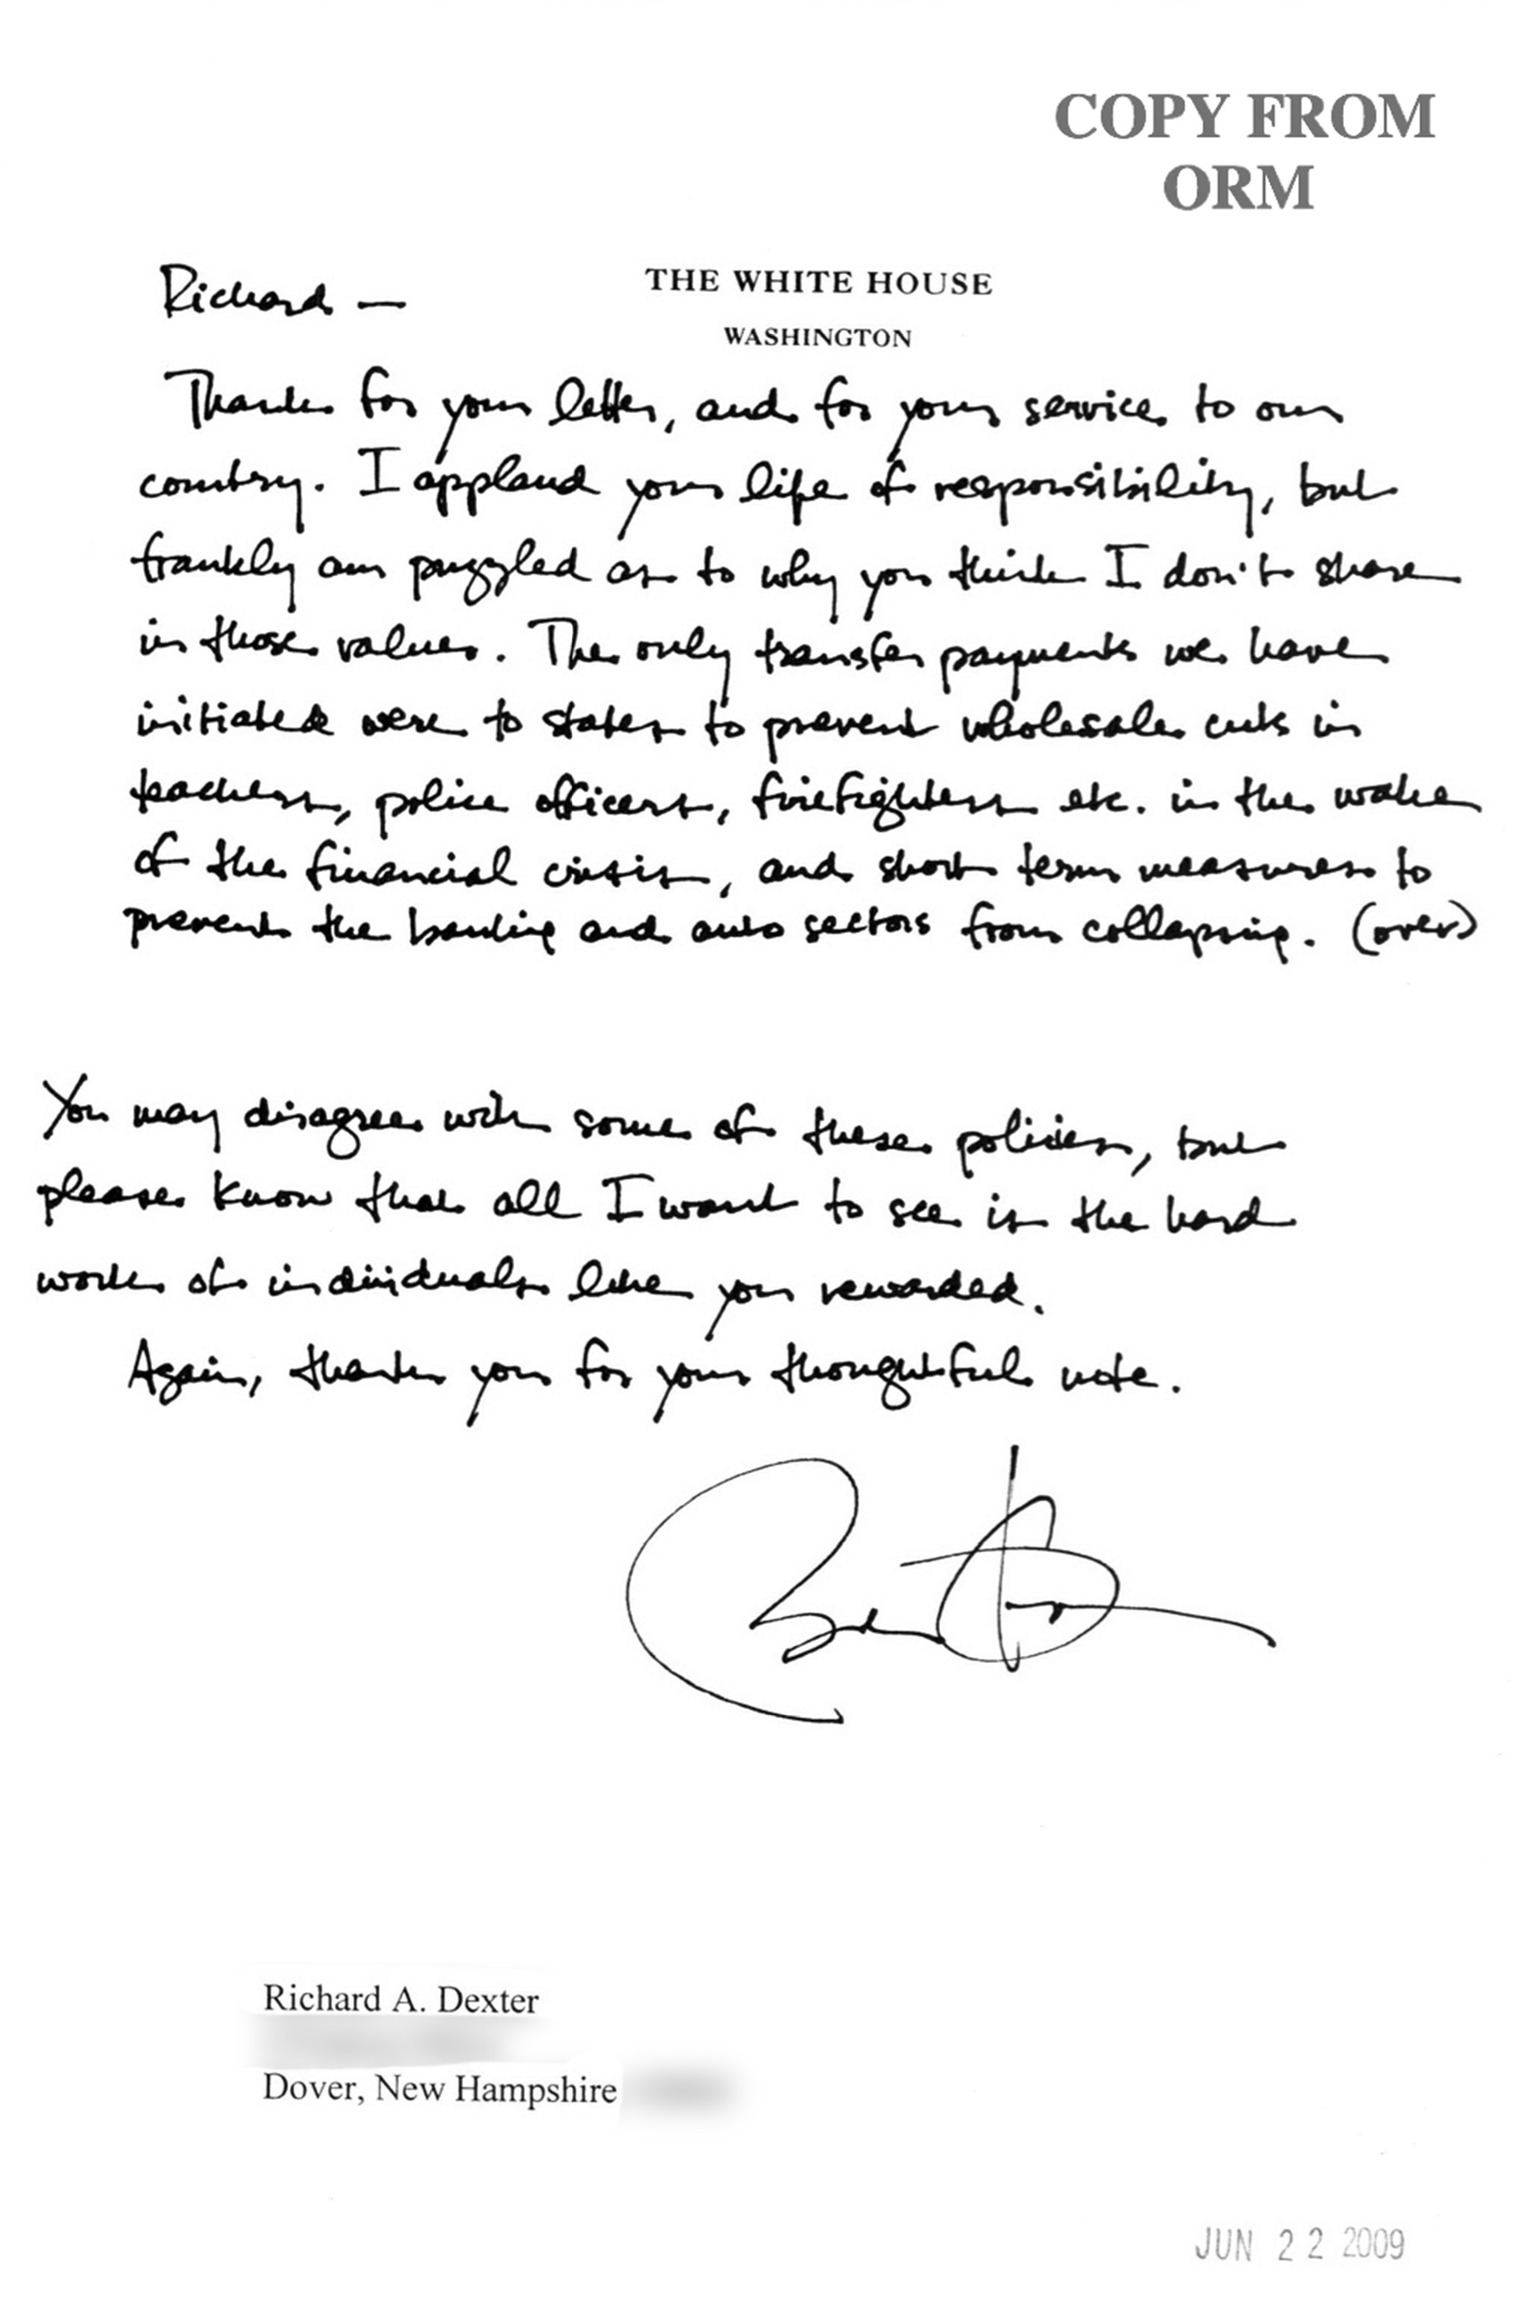 COPY FROM
ORM
Richard —
THE WHITE HOUSE
WASHINGTON
Thanks for your letter, and for your service to our
country. I applaud your life of responsibility, but
frankly am puzzled as to why you think I don't share
in those values. The only transfer payments we have
initiated were to states to prevent wholesale cuts in
teachers, police officers, firefighters etc. in the wake
of the financial crisis, and short term measures to
prevent the banking and auto sectors from collapsing. (over)
You may disagree with some of these policies, but
please know that all I want to see is the hard
work of individuals like you rewarded.
Again, thank you for your thoughtful note.
Richard A. Dexter
Dover, New Hampshire
JUN 22 2009